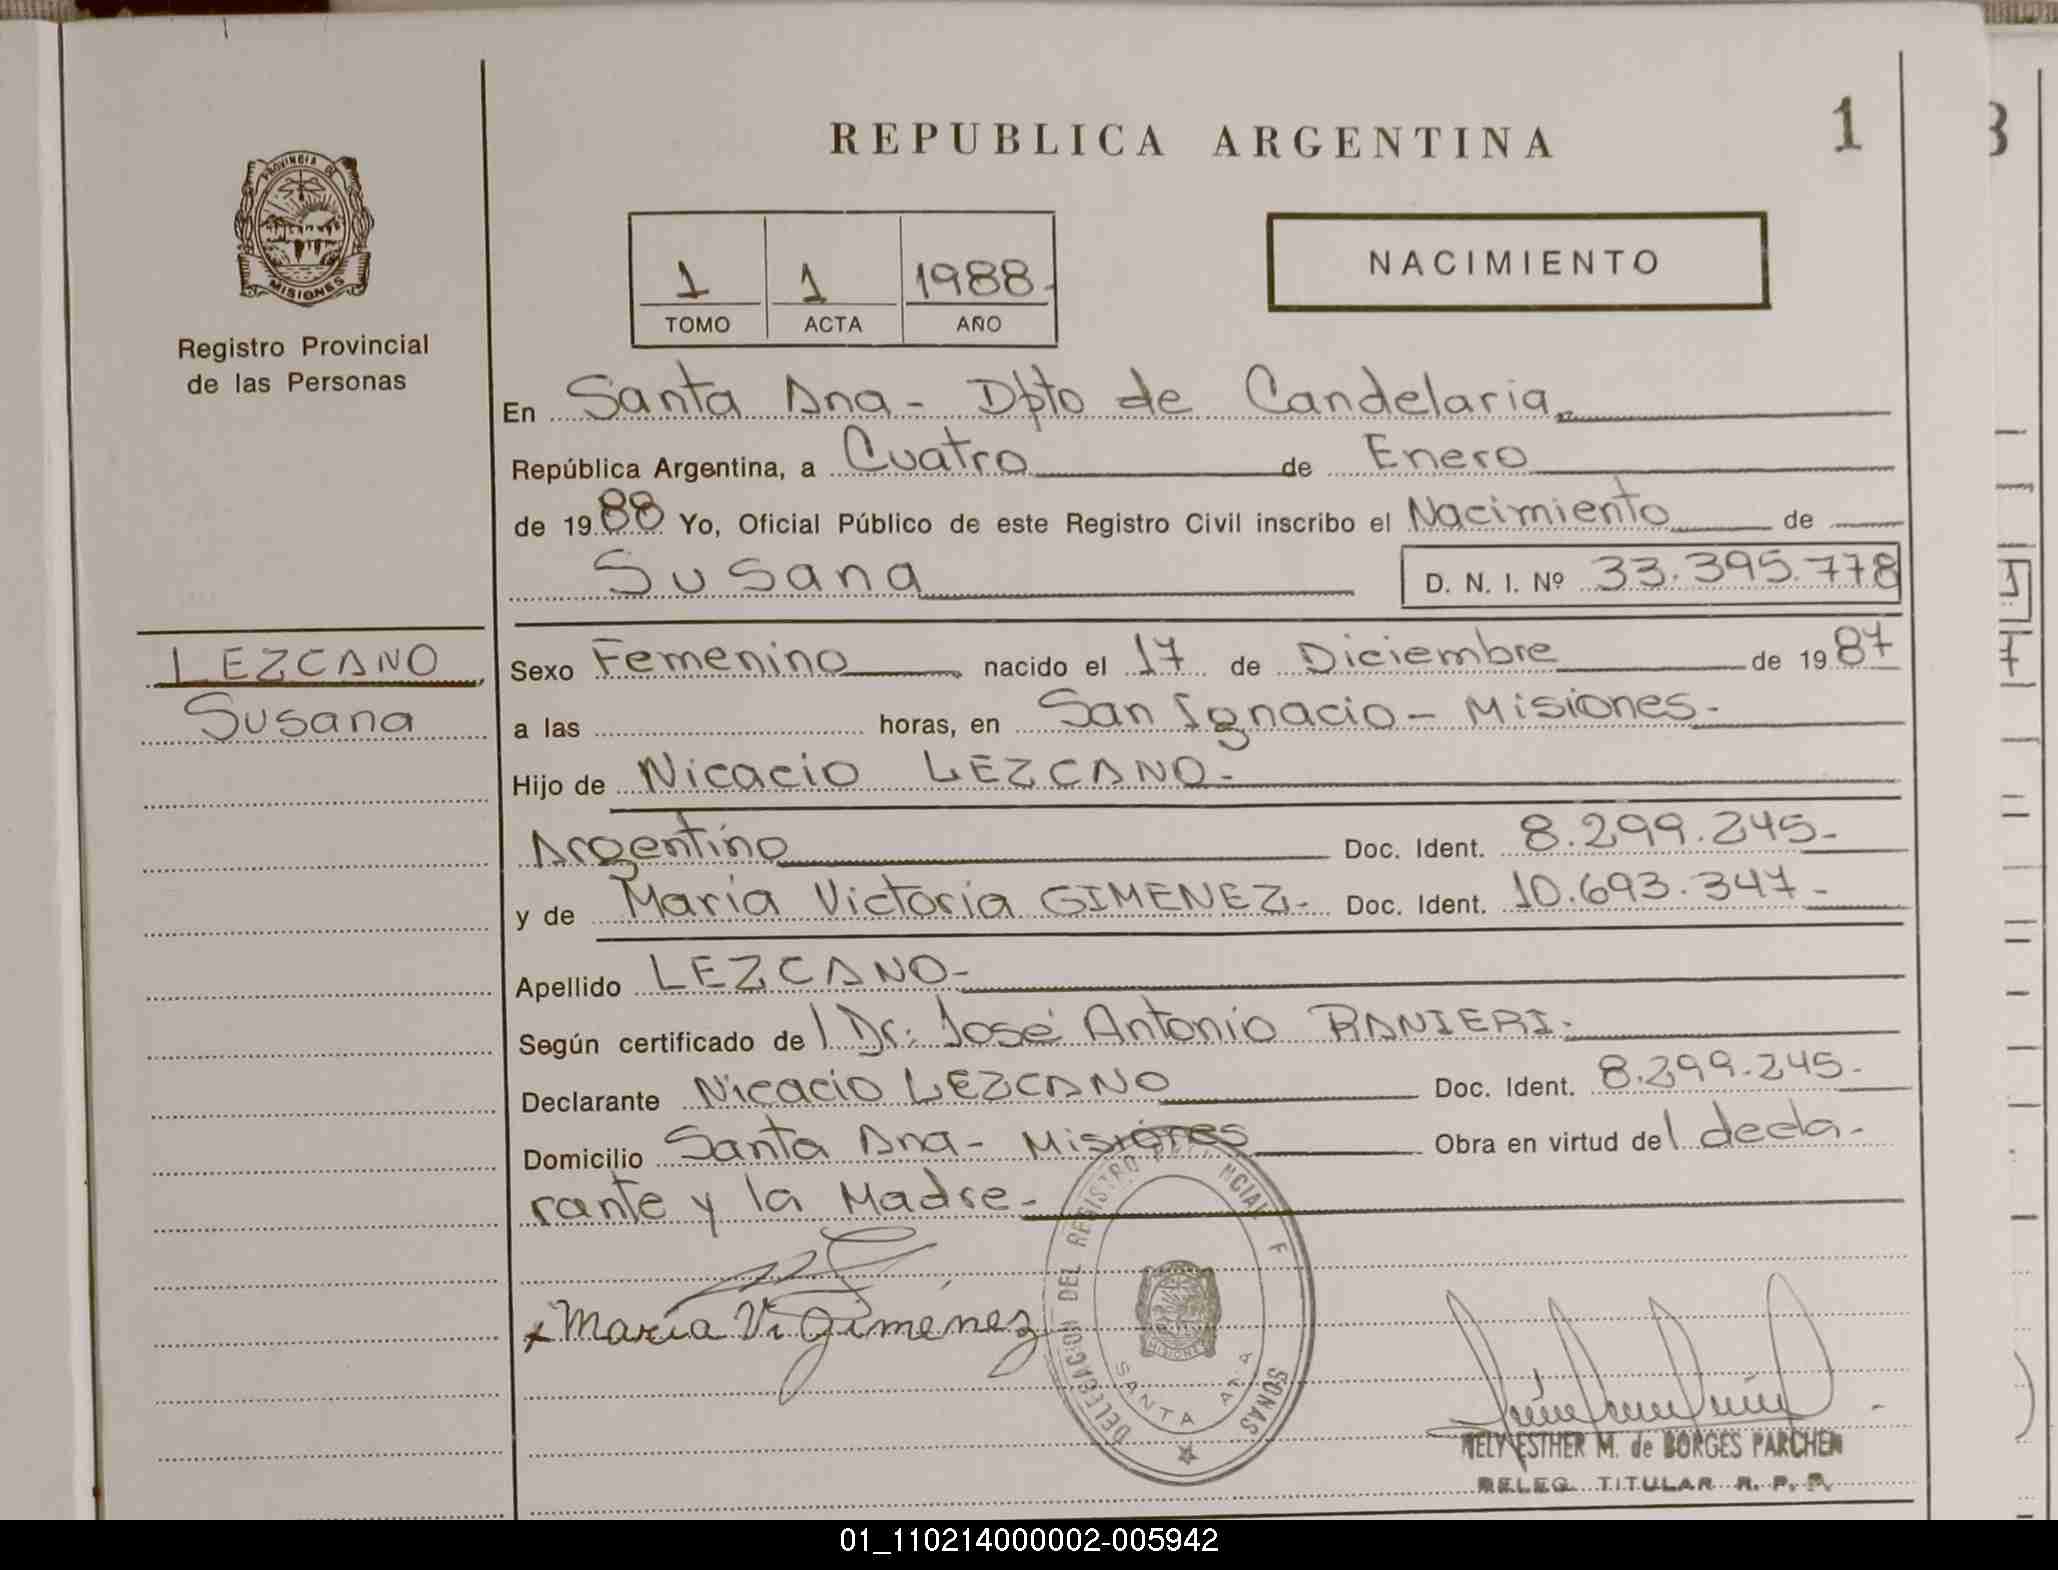 REPUBLICA ARGENTINA
1
PROVINCIA DE
MISIONES
Registro Provincial
de las Personas
1 1 1988
TOMO ACTA AÑO
NACIMIENTO
En Santa Ana - Dpto de Candelaria
República Argentina, a Cuatro de Enero
de 1988 Yo, Oficial Público de este Registro Civil inscribo el Nacimiento de
Susana D. N. I. Nº 33.395.778
LEZCANO
Susana
Sexo Femenino nacido el 17 de Diciembre de 1987
a las horas, en San Ignacio - Misiones -
Hijo de Nicacio LEZCANO -
Argentino Doc. Ident. 8.299.245 -
y de María Victoria GIMENEZ - Doc. Ident. 10.693.347 -
Apellido LEZCANO -
Según certificado del Dr. José Antonio RANIERI -
Declarante Nicacio LEZCANO Doc. Ident. 8.299.245 -
Domicilio Santa Ana - Misiones Obra en virtud del decla-
rante y la Madre -
María V. Giménez
DELEGACION DEL REGISTRO
SANTA ANA
MISIONES
NELY ESTHER M. de BORGES PARCHEN
DELEG. TITULAR R. P. P.
01_110214000002-005942